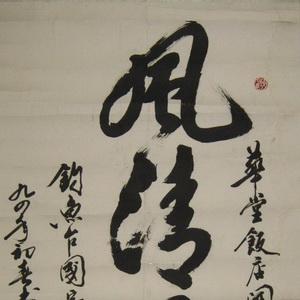 華堂飯店開
風清
釣魚台國
九四年初春